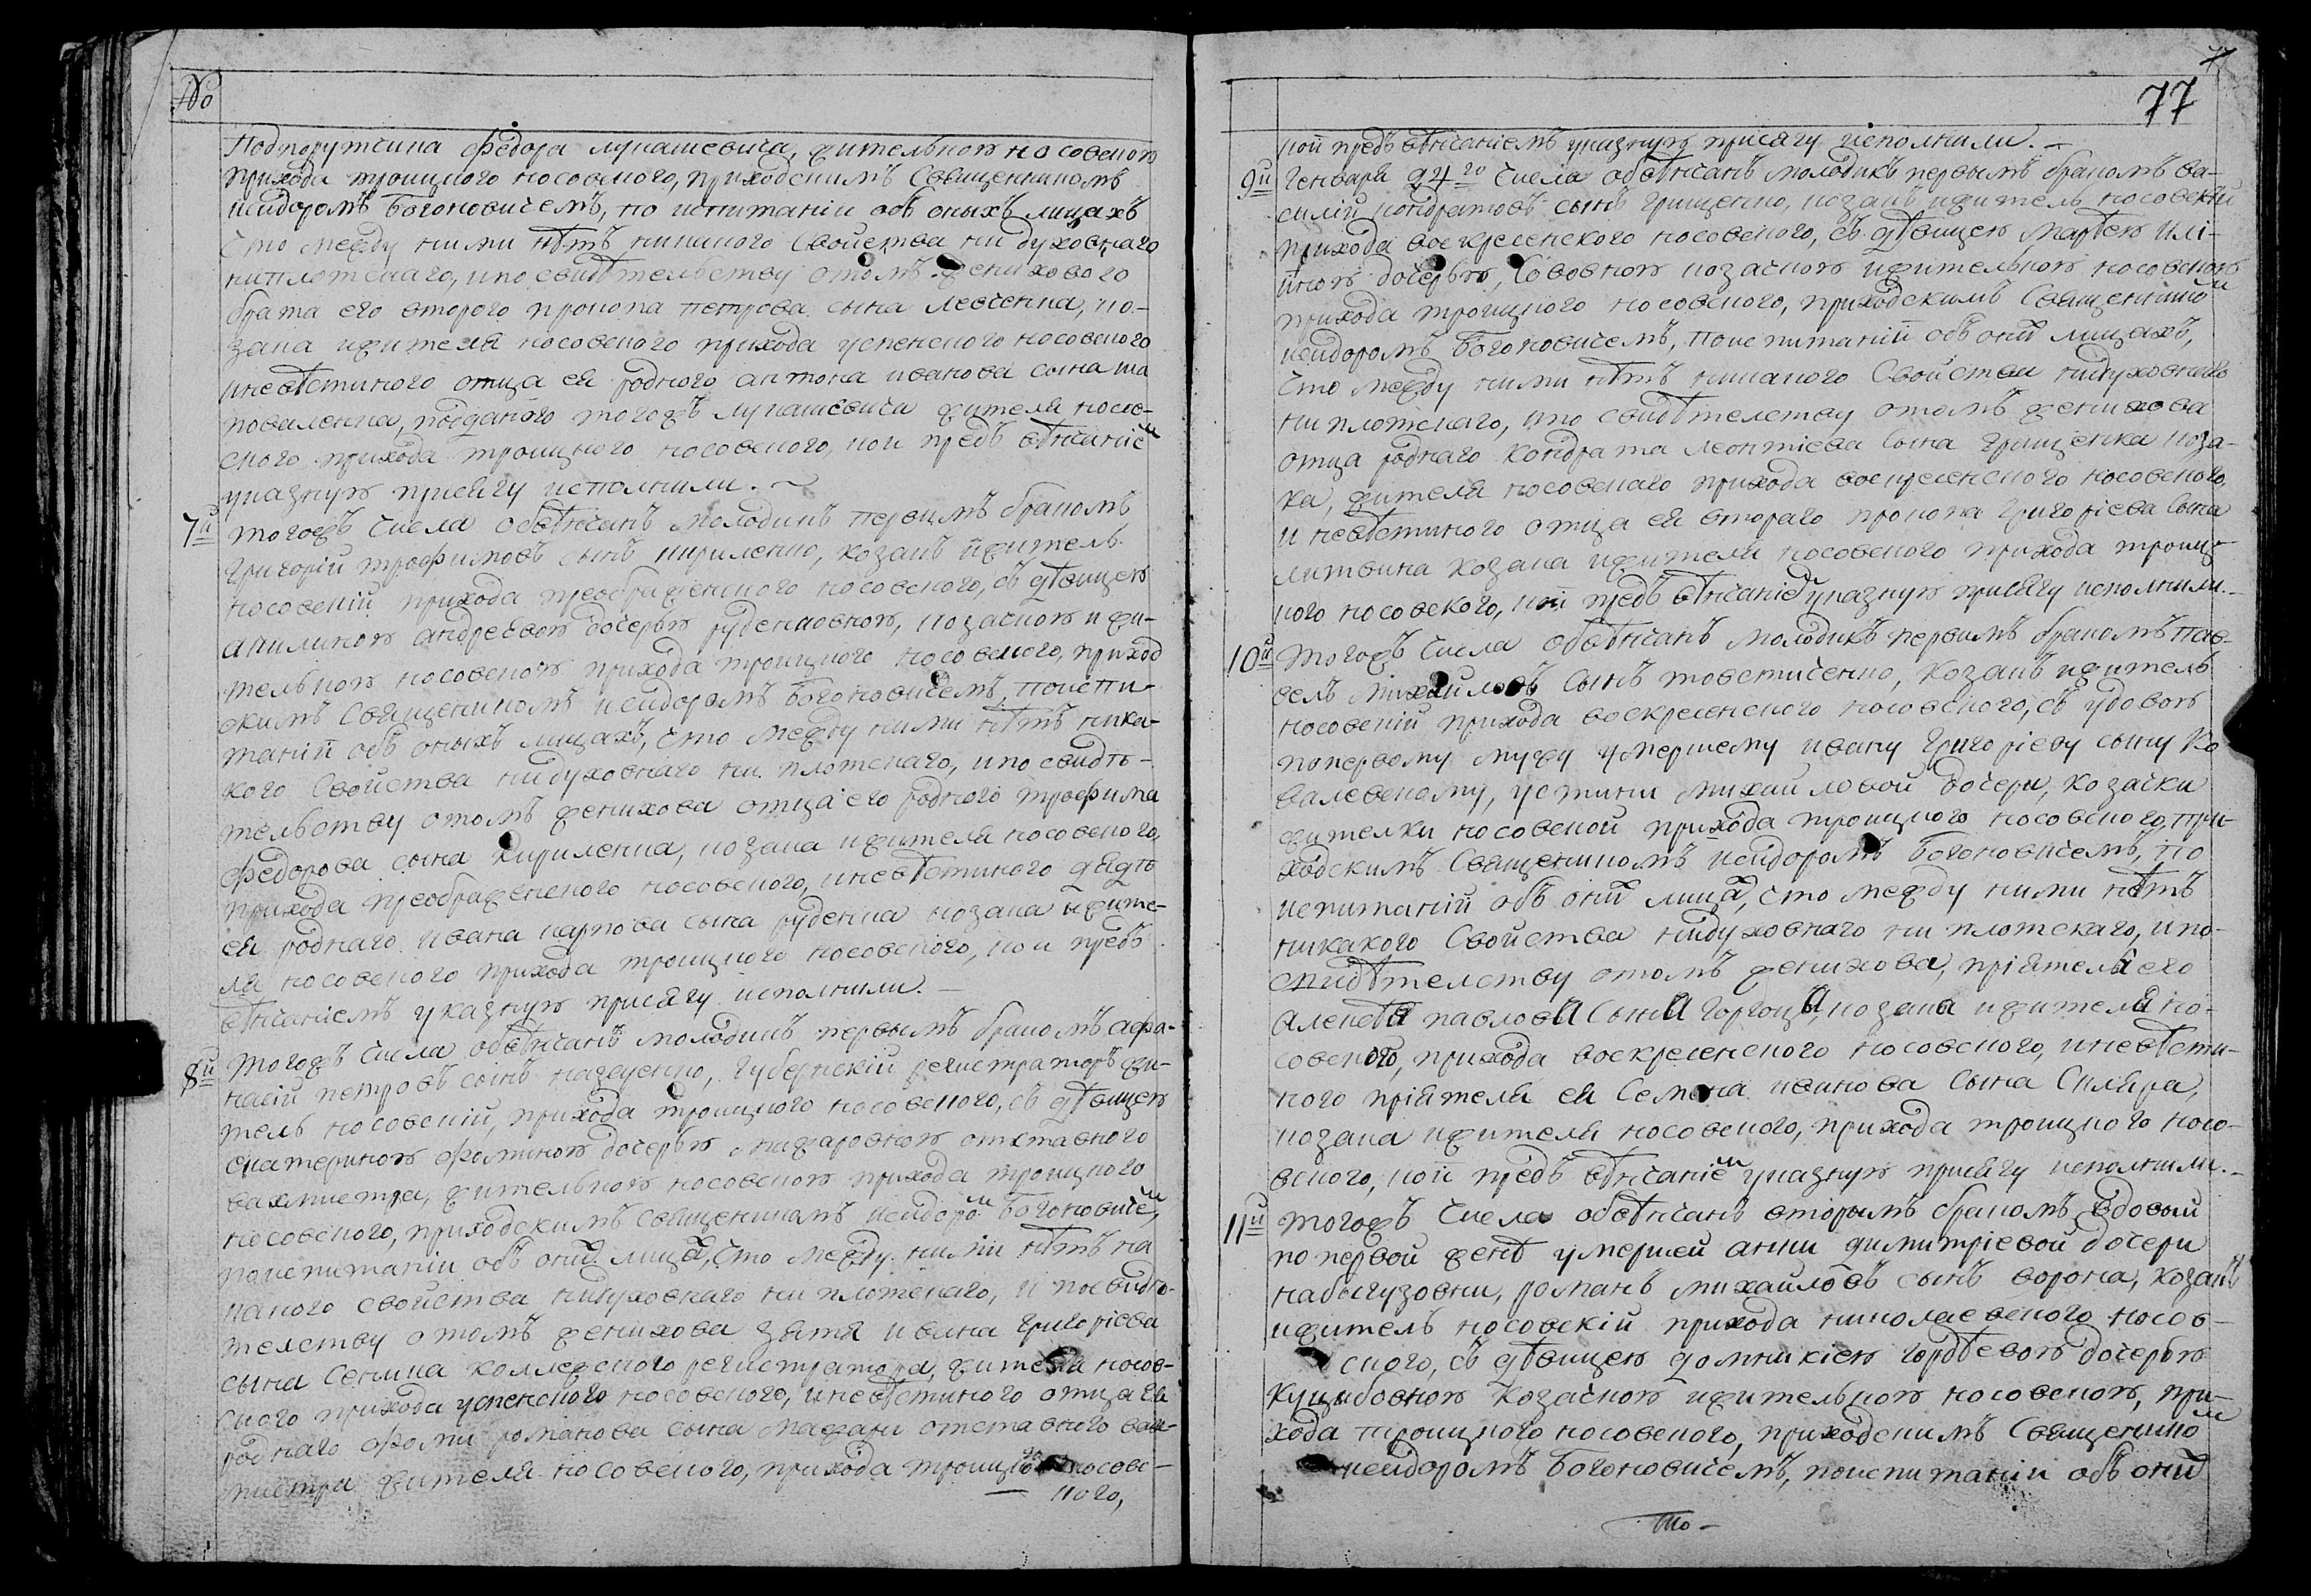 №
Подпоручика Федора лукашевича, жительною носовскою
прихода троицкого носовского, приходскимъ Священникомъ
исидоромъ Богоновичемъ, по испитаніи объ оныхъ лицахъ
Что между ними нѣтъ никакого Свойства ни духовнаго
ниплотскаго, ипо свидѣтельству отомъ женихового
брата его второго прокопа петрова сына левченка, ко-
зака ижителя носовского прихода успенского носовского
иневѣстиного отца ея родного антона иванова сына ша
поваленка, подданого тогожъ лукашевича жителя носов-
ского прихода троицкого носовского, кои предъ вѣнчаніем
указную присягу исполнили.
7й Тогожъ Числа обвѣнчанъ молодикъ первимъ бракомъ
Григорій трофимовъ сынъ кириленко, козакъ ижитель
носовскій прихода преображенского носовского, съ дѣвицею
акилиною андреевою дочерью руденковною, козачкою и жи-
тельною носовскою прихода троицкого носовского, приход
скимъ Священикомъ исидоромъ Богоновичемъ, поиспи-
таніи объ оныхъ лицахъ, что между ними нѣтъ ника-
кого Свойства нидуховнаго ни плотскаго, ипо свидѣ-
тельству отомъ женихова отца его родного трофима
Федорова сына кириленка, козака ижителя носовского,
прихода преображенского носовского, иневѣстиного дядѣ
ея роднаго ивана карпова сына руденка козака ижите-
ля носовского прихода троицкого носовского, кои предъ
вѣнчаніемъ указную присягу исполнили.
8й Тогожъ Числа обвѣнчанъ молодикъ первымъ бракомъ афа-
насій петровъ сынъ Губернскій регистраторъ жи-
тель носовскій, прихода троицкого носовского, съ дѣвицею
Екатериною фоминою дочерью мажаровною отставного
вахмистра, жительною носовскою прихода троицкого
носовского, приходскимъ священикамъ исидором Богоновичем,
поиспитаніи объ оних лицах, что между ними нѣтъ на
какого свойства нидуховнаго ни плотскаго, и посвидѣ-
телству отомъ женихова зятя ивана григоріева
сына Сенина коллежского регистратора, жителя носов-
ского прихода успенского носовского, иневѣстиного отца ея
роднаго Фоми романова сына мажари отставного вах-
мистра жителя носовского, прихода троицкого носовс-
кого,
77
77
кои предъ вѣнчаніемъ указную присягу исполнили.
9й Генваря 24го Числа обвѣнчанъ молодикъ первымъ бракомъ ва-
силій кондратовъ сынъ грищенко, козакъ ижитель носовскій
прихода воскресенского носовского, съ дѣвицею марѳею илі-
иною дочерью, козачкою ижительною носовскою
прихода троицкого носовского, приходскимъ Священником
исидоромъ Богоновичемъ, поиспитаніи объ оних лицахъ,
Что между ними нѣтъ никакого Свойства нидуховнаго
ни плотскаго, ипо свидѣтелству отомъ женихова
отца роднаго кондрата леонтіева Сына грищенка коза-
ка, жителя носовскаго прихода воскресенского носовского,
и невѣстиного отца ея втораго прокопа григоріева Сына
литвина козака ижителя носовского прихода троиц-
кого носовского, кои предъ вѣнчаніем указную присягу исполнили.
10й Тогожъ Числа обвѣнчанъ молодикъ первимъ бракомъ пав-
велъ михайловъ Сынъ товстиченко, козакъ ижитель
носовскій прихода воскресенского носовского, съ удовою
попервому мужу умершему ивану григоріеву сыну ко
валевскому, устини михайловой дочери, козачки
жителки носовской прихода троицкого носовского, при-
ходскимъ Священикомъ исидоромъ Богоновичемъ, по
испитаніи объ оних лицах, что между ними нѣтъ
никакого Свойства нидуховнаго ни плотскаго, ипо-
свидѣтелству отомъ женихова, пріятеля его
алексѣя павлова Сына козака ижителя но-
совского, прихода воскресенского носовского, иневѣсти-
ного пріятеля ея Семена иванова Сына Скляра,
козака ижителя носовского, прихода троицкого носо-
вского, кои предъ вѣнчаніем указную присягу исполнили.
11й Тогожъ Числа обвѣнчанъ вторымъ бракомъ вдовый
по первой женѣ умершей анни димитріевой дочери
набигузовни, романъ михайловъ сынъ ворона, козакъ
ижитель носовскій прихода николаевского носов-
ского, съ дѣвицею домникіею гордѣевою дочерью
Куцибовною козачкою ижительною носовскою, при-
хода троицкого носовского, приходскимъ Священиком
исидоромъ Богоновичемъ, поиспитаніи объ оних
Что